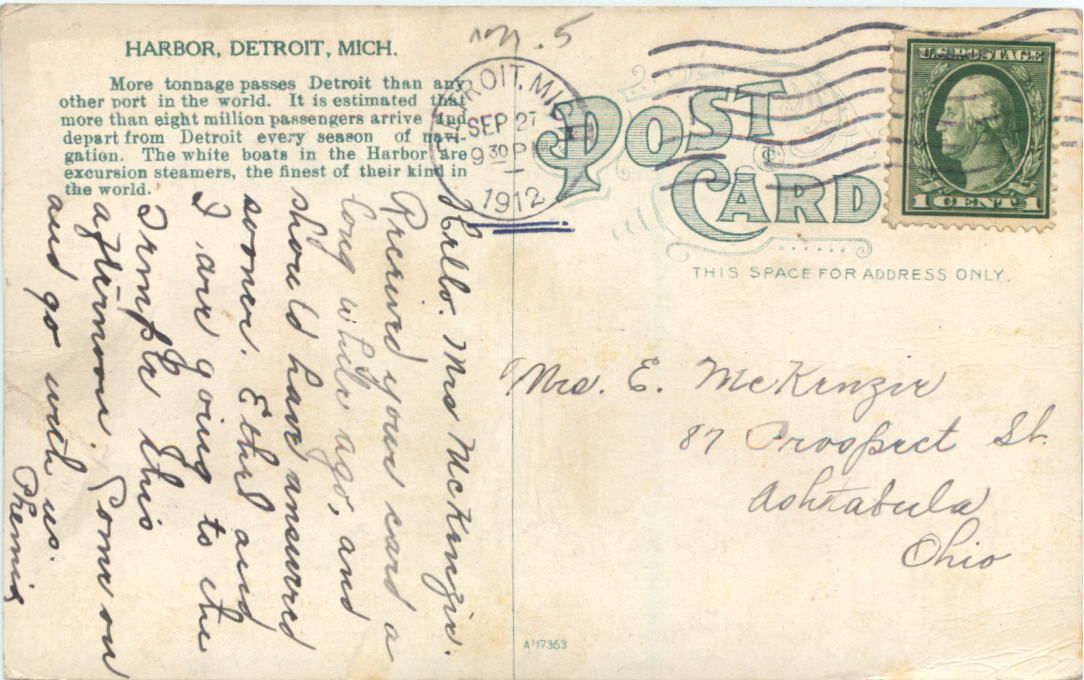 HARBOR, DETROIT, MICH.
More tonnage passes Detroit than any
other port in the world. It is estimated that
more than eight million passengers arrive and
depart from Detroit every season of navi-
gation. The white boats in the Harbor are
excursion steamers, the finest of their kind in
the world.
Hello. Mrs McKenzie.
Received your card a
long while ago, and
should have answered
sooner. Ethel and
I are going to the
Temple this
afternoon. Come on
and go with us.
DETROIT, MICH.
SEP 27
9 30 P
1912
POST
CARD
U.S. POSTAGE
1 CENT 1
THIS SPACE FOR ADDRESS ONLY.
Mrs. E. McKenzie
87 Prospect St.
Ashtabula
Ohio
A 17363